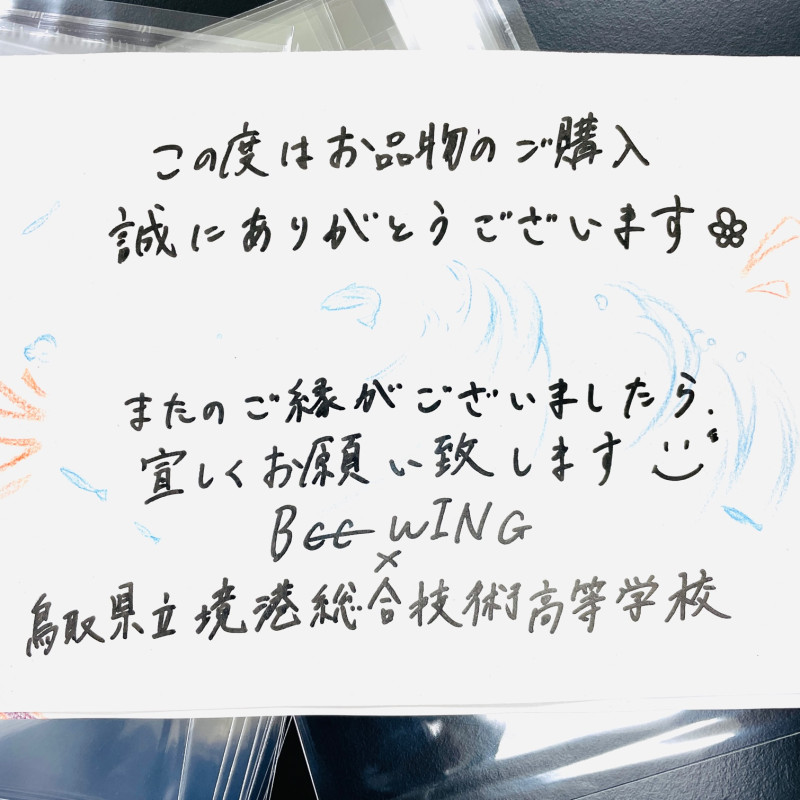 この度はお品物のご購入
誠にありがとうございます
またのご縁がございましたら、
宜しくお願い致します
Bee WING
×
鳥取県立境港総合技術高等学校